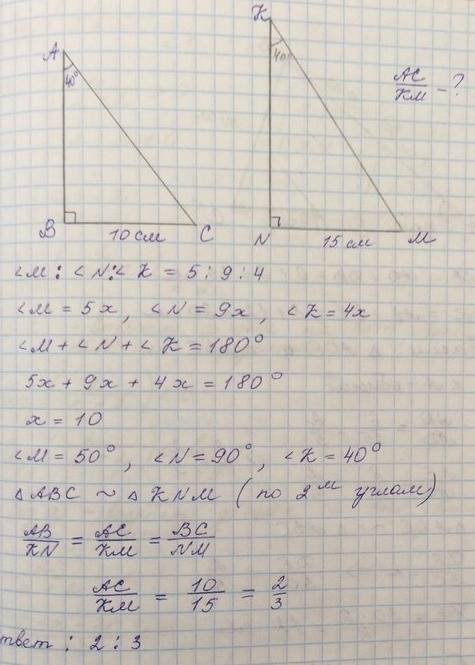 A
40°
B
10 см
C
K
40°
N
15 см
M
AC/KM - ?
∠M : ∠N : ∠K = 5 : 9 : 4
∠M = 5x, ∠N = 9x, ∠K = 4x
∠M + ∠N + ∠K = 180°
5x + 9x + 4x = 180°
x = 10
∠M = 50°, ∠N = 90°, ∠K = 40°
△ABC ~ △KNM (по 2м углам)
AB/KN = AC/KM = BC/NM
AC/KM = 10/15 = 2/3
твет : 2 : 3